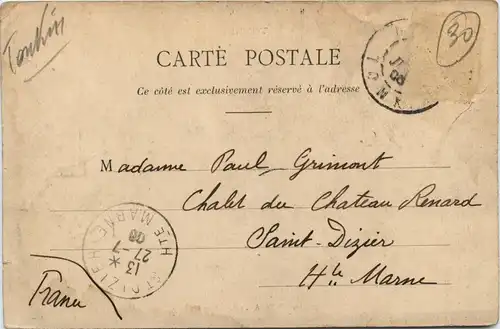 Tonkin
30
CARTE POSTALE
Ce côté est exclusivement réservé à l'adresse
TONK
Madame Paul Grimont
Chalet du Chateau Renard
Saint-Dizier
Hte Marne
ST DIZIER HTE MARNE
13
27-7
08
France